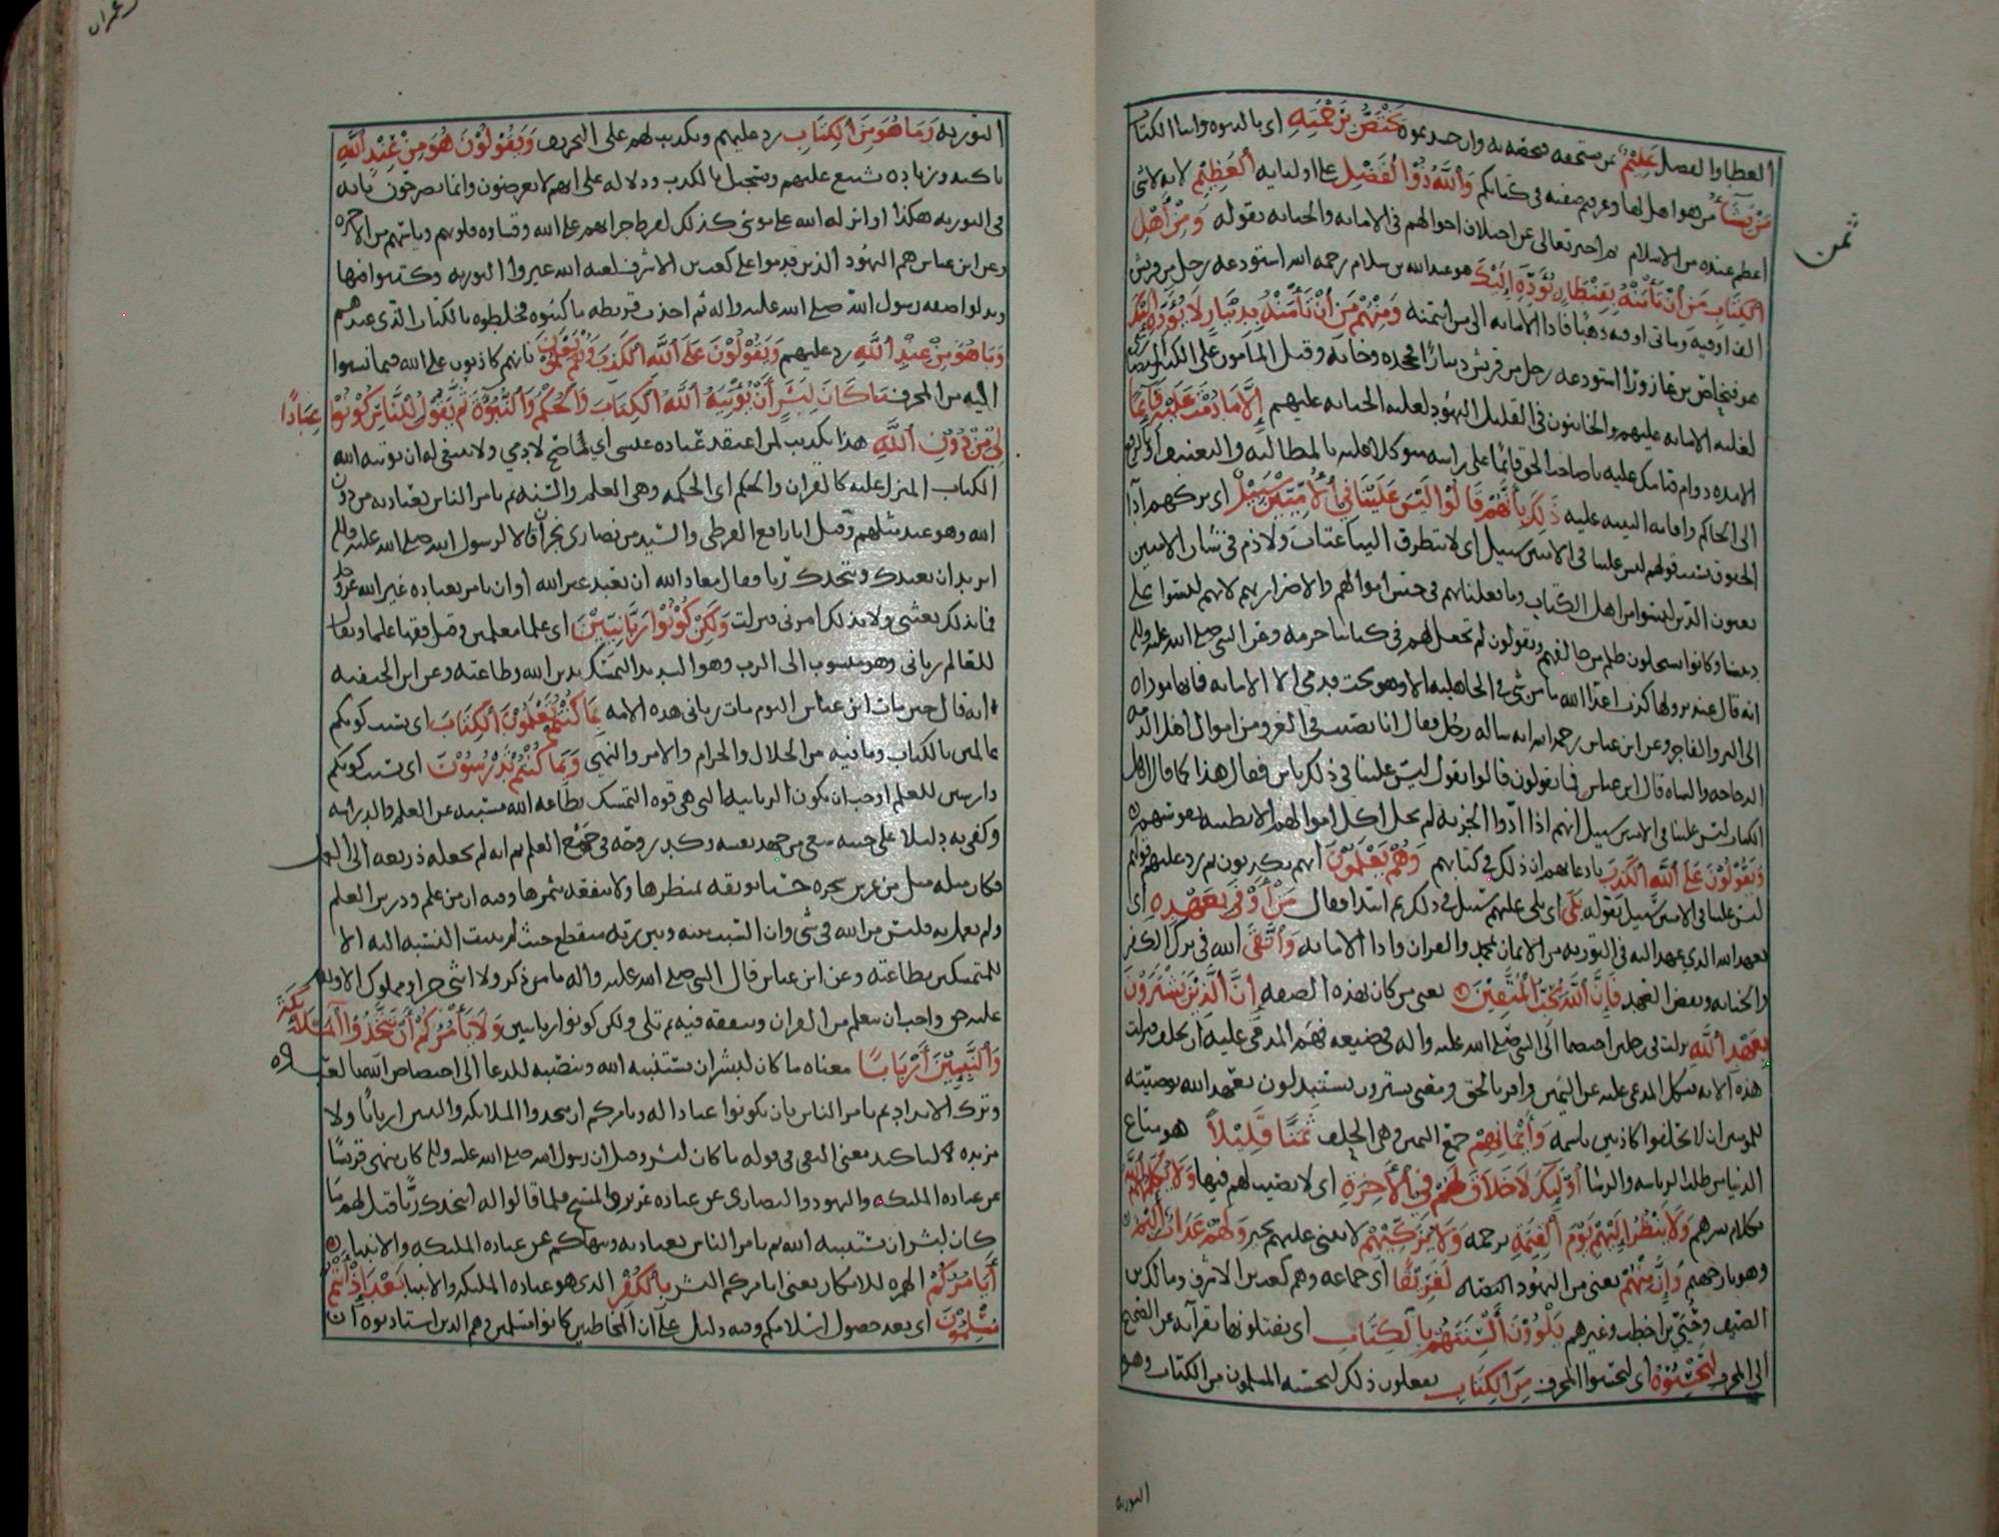 العطا والفضل عَلِيْمٌ بمن يستحقه فيخصه به وان جحدتموه يَخْتَصُّ بِرَحْمَتِهِ اى بالنبوه وايتا الكتاب
مَنْ يَشَآءُ ممن هو اهل لها وعرفتم صفته فى كتابكم وَاَللَّهُ ذُوْ اَلْفَضْلِ على اوليايه اَلْعَظِيْمِ لانه لا شى
اعظم عنده من الاسلام ثم اخبر تعالى عن اختلاف احوالهم فى الامانه والخيانه بقوله وَمِنْ أَهْلِ
اَلْكِتَابِ مَنْ أَنْ تَأْمَنْهُ بِقِنْطَارٍ يُؤَدِّهِ إِلَيْكَ هو عبد الله بن سلام رحمه الله استودعه رجل من قريش
الفا اوقيه ومائتى اوقيه ذهبًا فادا الامانه الى من ايتمنه وَمِنْهُمْ مَنْ أَنْ تَأْمَنْهُ بِدِيْنَارٍ لَا يُؤَدِّهِ إِلَيْكَ
هو فنحاص بن عازورا استودعه رجل من قريش دينارًا فجحده وخانه وقيل المأمون على الكثير النصارى
لغلبه الامانه عليهم والخاينون فى القليل اليهود لغلبه الخيانه عليهم إِلَّا مَا دُمْتَ عَلَيْهِ قَآئِمًا
الا مده دوام قيامك عليه يا صاحب الحق قايمًا على راسه متوكلا عليه بالمطالبه والتعنيف او بالرفع
الى الحاكم واقامه البينه عليه ذَلِكَ بِأَنَّهُمْ قَالُوْا لَيْسَ عَلَيْنَا فِي اَلْأُمِّيِّيْنَ سَبِيْلٌ اى تركهم ادآ
الحقوق بسبب قولهم ليس علينا فى الاميين سبيل اى لا يتطرق الينا عتاب ولا ذم فى شان الاميين
يعنون الذين ليسوا من اهل الكتاب وما فعلنا بهم فى حبس اموالهم والاضرار بهم لانهم ليسوا على
ديننا وكانوا يستحلون ظلم من خالفهم ويقولون لم تجعل لهم فى كتابنا حرمه وعن النبى صلى الله عليه واله
انه قال عند نزولها كذب اعدا الله ما من شى فى الجاهليه الا وهو تحت قدمى الا الامانه فانها موداه
الى البر والفاجر وعن ابن عباس رحمه الله انه ساله رجل فقال انا نصيب فى الغزو من اموال اهل الذمه
الدجاجه والشاه قال ابن عباس فما تقولون قالوا نقول ليس علينا فى ذلك باس فقال هذا كما قال اهل
الكتاب ليس علينا فى الاميين سبيل انهم اذا ادّوا الجزيه لم يحل اكل اموالهم الا بطيبه نفوسهم
وَيَقُوْلُوْنَ عَلَى اَللَّهِ اَلْكَذِبَ بادعايهم ان ذلك فى كتابهم وَهُمْ يَعْلَمُوْنَ انهم يكذبون ثم رد عليهم قولهم
ليس علينا فى الاميين سبيل بقوله بَلَى اى بلى عليهم سبيل فى ذلك ثم ابتدا فقال مَنْ أَوْفَى بِعَهْدِهِ اى
بعهد الله الذى عهد اليه فى التوريه من الايمان بمحمد والقران وادا الامانه وَاَتَّقَى الله فى ترك الكفر
والخيانه ونقض العهد فَإِنَّ اَللَّهَ يُحِبُّ اَلْمُتَّقِيْنَ يعنى من كان بهذه الصفه إِنَّ اَلَّذِيْنَ يَشْتَرُوْنَ
بِعَهْدِ اَللَّهِ نزلت فى رجلين اختصما الى النبى صلى الله عليه واله فى ضيعه فهَمَّ المدعى عليه ان يحلف فنزلت
هذه الايه فنكل المدعى عليه عن اليمين واقر بالحق ومعنى يشترون يستبدلون بعهد الله بوصيته
للمومنين ان لا يحلفوا كاذبين باسمه وَأَيْمَانِهِمْ جمع اليمين وهى الحلف ثَمَنًا قَلِيْلاً هو متاع
الدنيا من طلب الرياسه والرشا أُوْلَئِكَ لَا خَلَاقَ لَهُمْ فِي اَلْأَخِرَةِ اى لا نصيب لهم فيها وَلَا يُكَلِّمُهُمُ اَللَّهُ
بكلام يسرهم وَلَا يَنْظُرُ إِلَيْهِمْ يَوْمَ اَلْقِيَمَةِ برحمه وَلَا يُزَكِّيْهِمْ لا يثنى عليهم بخير وَلَهُمْ عَذَابٌ أَلِيْمٌ
وَإِنَّ مِنْهُمْ يعنى من اليهود لَفَرِيْقًا اى جماعه وهم كعب بن الاشرف ومالك بن
الصيف وحُيَيّ بن اخطب وغيرهم يَلْوُوْنَ أَلْسِنَتَهُمْ بِالْكِتَابِ اى يفتلونها بقرآنه عن الصحيح
الى المحرف لِتَحْسَبُوْهُ اى لتحسبوا المحرف مِنَ اَلْكِتَابِ يفعلون ذلك ليحسبه المسلمون من الكتاب وهو
ثمن
التوريه
التوريه وَمَا هُوَ مِنَ اَلْكِتَابِ رد عليهم وتكذيب لهم على التحريف وَيَقُوْلُوْنَ هُوَ مِنْ عِنْدِ اَللَّهِ
تاكيد وزياده تشنيع عليهم وتسجيل بالكذب ودلاله على انهم لا يعرضون وانما يصرحون بانه
فى التوريه هكذا او انزله الله على موسى كذلك لفرط جراتهم على الله وقساوه قلوبهم وياسهم من الاخره
وعن ابن عباس هم اليهود الذين قدموا على كعب بن الاشرف لعنه الله غيروا التوريه وكتبوا فيها
وبدلوا صفه رسول الله صلى الله عليه واله ثم اخذت قريظه ما كتبوه فخلطوه بالكتاب الذى عندهم
وَمَا هُوَ مِنْ عِنْدِ اَللَّهِ رد عليهم وَيَقُوْلُوْنَ عَلَى اَللَّهِ اَلْكَذِبَ وَهُمْ يَعْلَمُوْنَ بانهم كاذبون على الله فيما نسبوا
اليه من المحرف مَا كَانَ لِبَشَرٍ أَنْ يُؤْتِيَهُ اَللَّهُ اَلْكِتَابَ وَاَلْحُكْمَ وَاَلنُّبُوَّةَ ثُمَّ يَقُوْلَ لِلنَّاسِ كُوْنُوْا عِبَادًا
لِيْ مِنْ دُوْنِ اَللَّهِ هذا تكذيب لمن اعتقد عباده عيسى اي لم يصح لادمي ولا ينبغى له ان يوتيه الله
الكتاب المنزل عليه كالقران والحكم اى الحكمه وهى العلم والسنه ثم يامر الناس بعبادته من دون
الله وهو عبد مثلهم وقيل ابا رافع القرظى والسيد من نصارى نجران قالا لرسول الله صلى الله عليه واله
اتريد ان نعبدك ونتخذك ربا فقال معاذ الله ان نعبد غير الله او ان نامر بعباده غير الله عز وجل
فما بذلك بعثنى ولا بذلك امرنى فنزلت وَلَكِنْ كُوْنُوْا رَبَّانِيِّيْنَ اى علما معلمين وقيل فقها علما ويقال
للعالم ربانى وهو منسوب الى الرب وهو الشديد التمسك بدين الله وطاعته وعن ابن الحنفيه
انه قال حين مات ابن عباس اليوم مات ربانى هذه الامه بِمَا كُنْتُمْ تَعْلَمُوْنَ اَلْكِتَابَ اى بسبب كونكم
عالمين بالكتاب وما فيه من الحلال والحرام والامر والنهى وَبِمَا كُنْتُمْ تَدْرُسُوْنَ اى بسبب كونكم
دارسين للعلم اوجب ان تكون الربانيه التى هى قوه التمسك بطاعه الله مسببه عن العلم والدراسه
وكفى به دليلا على خيبه سعى من جهد نفسه وكد روحه فى جمع العلم ثم انه لم يجعله ذريعه الى العمل
فكان مثله مثل من غرس شجره حسنا تونقه بمنظرها ولا تنفعه بثمرها وفيه ان من علم ودرس العلم
ولم يعمل به فليس من الله فى شى وان السبب بينه وبين ربه منقطع حيث لم يثبت النسبه اليه الا
للمتمسكين بطاعته وعن ابن عباس قال النبى صلى الله عليه واله ما من ذكر ولا انثى حر او مملوك الا ولله
عليه حق واجب ان يتعلم من القران ويتفقه فيه ثم تلى ولكن كونوا ربانيين وَلَا يَأْمُرَكُمْ أَنْ تَتَّخِذُوْا اَلْمَلَآئِكَةَ
وَاَلنَّبِيِّيْنَ أَرْبَابًا معناه ما كان لبشر ان يستنبيه الله وينصبه للدعا الى اختصاص الله بالعباده
وترك الانداد ثم يامر الناس بان يكونوا عبادا له ويامركم ان تتخذوا الملائكه والنبيين اربابًا ولا
مزيده لتاكيد معنى النفى فى قوله ما كان لبشر وقيل ان رسول الله صلى الله عليه واله كان ينهى قريشًا
عن عباده الملئكه واليهود والنصارى عن عباده عزير والمسيح فلما قالوا له انتخذك ربًّا قيل لهم ما
كان لبشر ان يستنبيه الله ثم يامر الناس بعبادته وينهاكم عن عباده الملئكه والانبيا
أَيَأْمُرُكُمْ الهمزه للانكار يعنى ايامركم البشر بِالْكُفْرِ الذى هو عباده الملئكه والانبيا بَعْدَ إِذْ أَنْتُمْ
مُسْلِمُوْنَ اى بعد حصول اسلامكم وفيه دليل على ان المخاطبين كانوا مسلمين وهم الذين استاذنوه ان